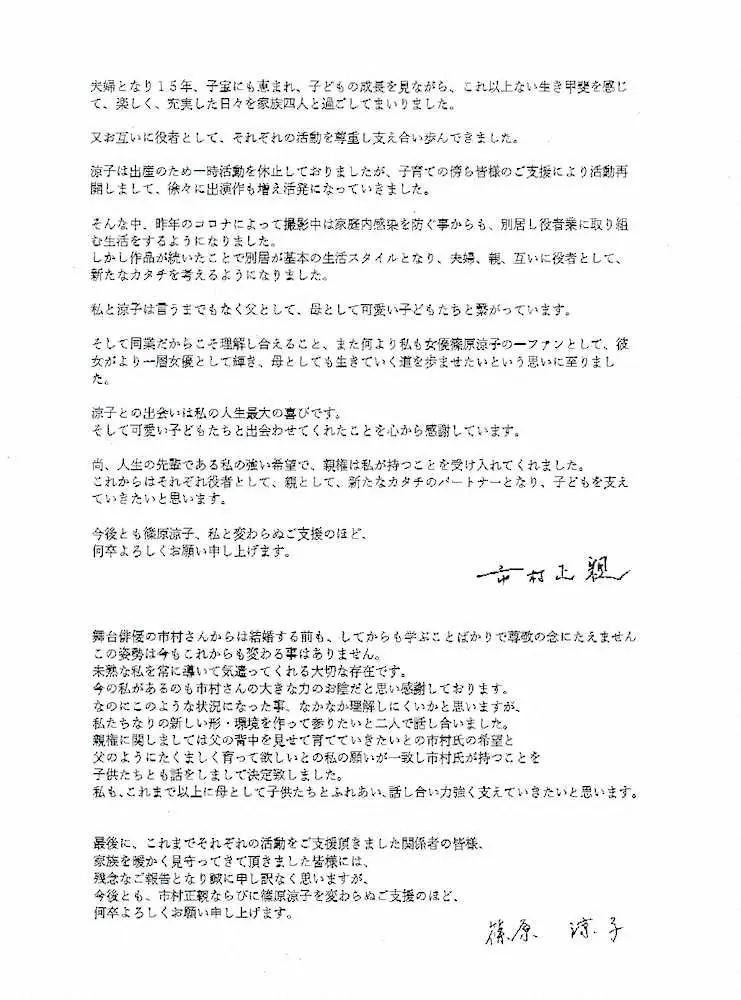 夫婦となり１５年、子宝にも恵まれ、子どもの成長を見ながら、これ以上ない生き甲斐を感じ
て、楽しく、充実した日々を家族四人と過ごしてまいりました。
又お互いに役者として、それぞれの活動を尊重し支え合い歩んできました。
涼子は出産のため一時活動を休止しておりましたが、子育ての傍ら皆様のご支援により活動再
開しまして、徐々に出演作も増え活発になっていきました。
そんな中、昨年のコロナによって撮影中は家庭内感染を防ぐ事からも、別居し役者業に取り組
む生活をするようになりました。
しかし作品が続いたことで別居が基本の生活スタイルとなり、夫婦、親、互いに役者として、
新たなカタチを考えるようになりました。
私と涼子は言うまでもなく父として、母として可愛い子どもたちと繋がっています。
そして同業だからこそ理解し合えること、また何より私も女優篠原涼子の一ファンとして、彼
女がより一層女優として輝き、母としても生きていく道を歩ませたいという思いに至りまし
た。
涼子との出会いは私の人生最大の喜びです。
そして可愛い子どもたちと出会わせてくれたことを心から感謝しています。
尚、人生の先輩である私の強い希望で、親権は私が持つことを受け入れてくれました。
これからはそれぞれ役者として、親として、新たなカタチのパートナーとなり、子どもを支え
ていきたいと思います。
今後とも篠原涼子、私と変わらぬご支援のほど、
何卒よろしくお願い申し上げます。
市村正親
舞台俳優の市村さんからは結婚する前も、してからも学ぶことばかりで尊敬の念にたえません
この姿勢は今もこれからも変わる事はありません。
未熟な私を常に導いて気遣ってくれる大切な存在です。
今の私があるのも市村さんの大きな力のお陰だと思い感謝しております。
なのにこのような状況になった事、なかなか理解しにくいかと思いますが、
私たちなりの新しい形・環境を作って参りたいと二人で話し合いました。
親権に関しましては父の背中を見せて育てていきたいとの市村氏の希望と
父のようにたくましく育って欲しいとの私の願いが一致し市村氏が持つことを
子供たちとも話をしまして決定致しました。
私も、これまで以上に母として子供たちとふれあい、話し合い力強く支えていきたいと思います。
最後に、これまでそれぞれの活動をご支援頂きました関係者の皆様、
家族を暖かく見守ってきて頂きました皆様には、
残念なご報告となり誠に申し訳なく思いますが、
今後とも、市村正親ならびに篠原涼子を変わらぬご支援のほど、
何卒よろしくお願い申し上げます。
篠原 涼子